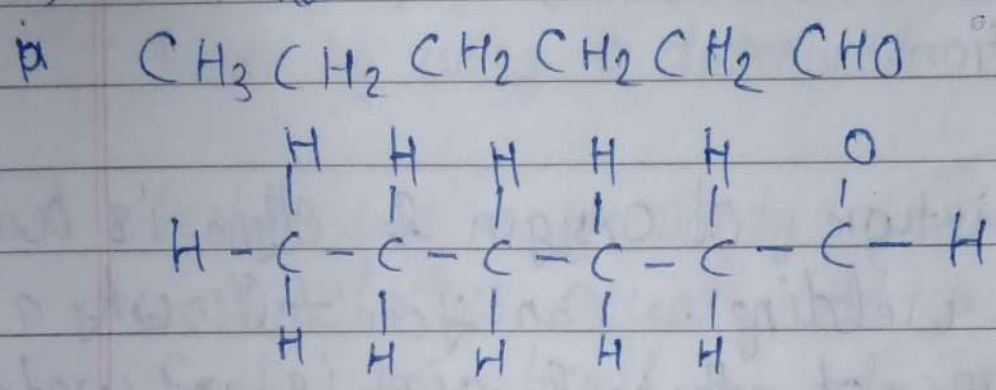 CH3 CH2 CH2 CH2 CH2 CHO
H H H H H O
H - C - C - C - C - C - C - H
H H H H H